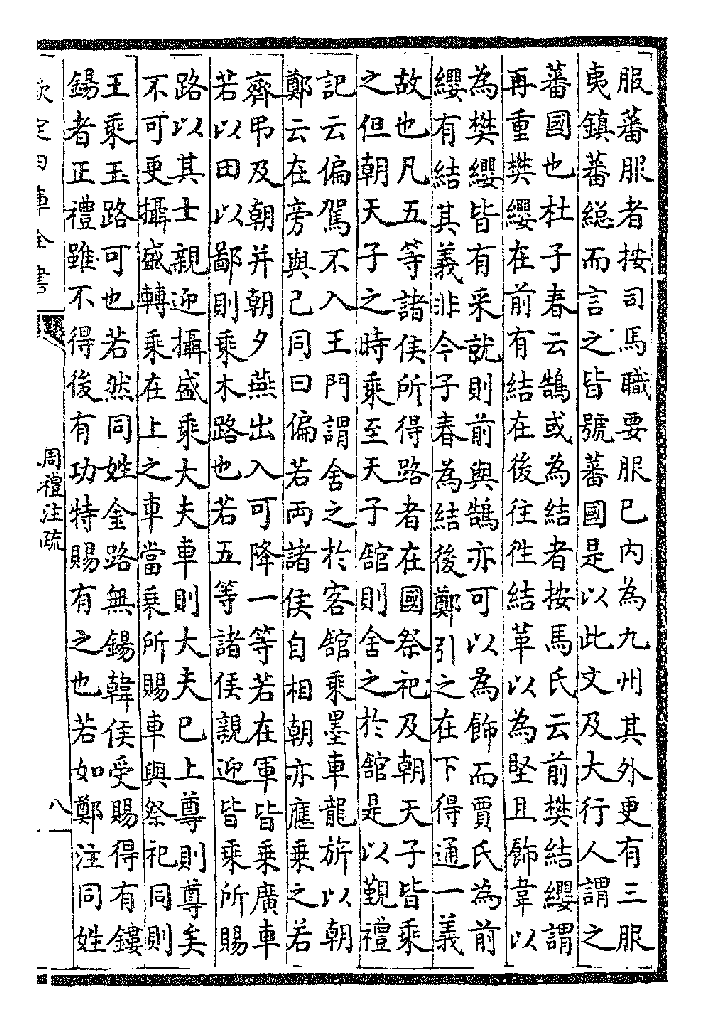 服蕃服者按司馬職要服已内為九州其外更有三服
夷鎮蕃緫而言之皆號蕃國是以此文及大行人謂之
蕃國也杜子春云鵠或為結者按馬氏云前樊結纓謂
再重樊纓在前有結在後往徃結革以為堅且飾韋以
為樊纓皆有采就則前與鵠亦可以為飾而賈氏為前
纓有結其義非今子春為結後鄭引之在下得通一義
故也凡五等諸侯所得路者在國祭祀及朝天子皆乘
之但朝天子之時乘至天子舘則舍之於舘是以覲禮
記云偏駕不入王門謂舍之於客舘乘墨車龍旂以朝
鄭云在旁與己同曰偏若兩諸侯自相朝亦應乘之若
齊弔及朝并朝夕燕出入可降一等若在軍皆乘廣車
若以田以鄙則乘木路也若五等諸侯親迎皆乘所賜
路以其士親迎攝盛乘大夫車則大夫已上尊則尊矣
不可更攝盛轉乘在上之車當乘所賜車與祭祀同則
王乘玉路可也若然同姓金路無鍚韓侯受賜得有鏤
鍚者正禮雖不得後有功特賜有之也若如鄭注同姓
欽定四庫全書
周禮注疏
八